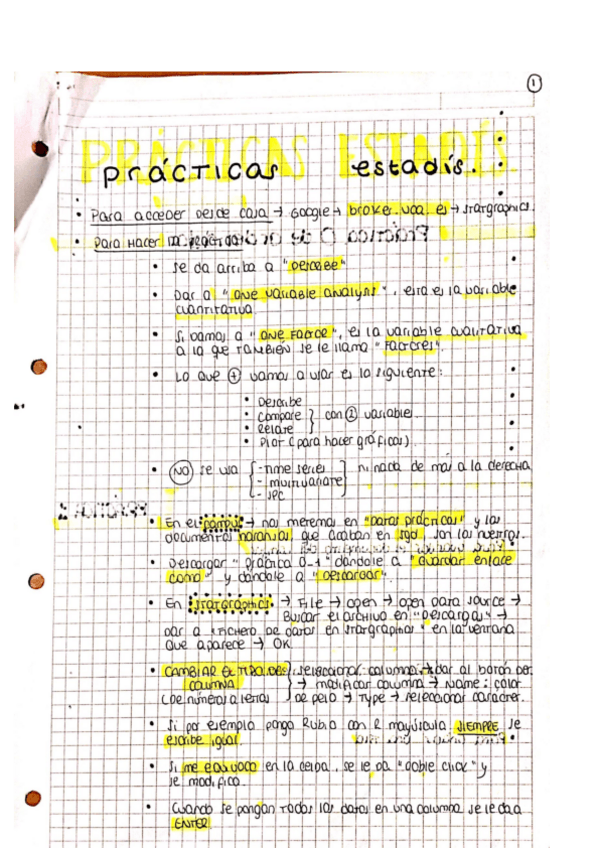 1
PRÁCTICAS ESTADÍS.
prácticas estadís.
• Para acceder desde casa → Google → broker.uca.es → stargraphics.
• Para Hacer
• Se da arriba a "Describe"
• Dar a "one variable analysis", esta es la variable
cuantitativa
• Si vamos a "one factor", es la variable cualitativa
a la que TAMBIÉN se le llama "Factores".
• Lo que + vamos a usar es lo siguiente:
• Describe
• Compare
• Relate } con 2 variables.
• Plot (para hacer gráficos)
• NO se usa { - Time series
- multivariate
- SPC } ni nada de más a la derecha
• En el campus → nos metemos en "datos prácticas" y los
documentos naranjas, que acaban en sgd, son los nuestros.
• Descargar "práctica 0-1" dándole a "Guardar enlace
como" y dándole a "Descargar".
• En stargraphics → File → open → open data source →
Buscar el archivo en "Descargas" →
dar a "Fichero de datos en stargraphics" en la ventana
que aparece → OK
• CAMBIAR EL TIPO DE } seleccionar columna → dar al botón der.
COLUMNA → modificar columna → Name: color
(de números a letras de pelo → Type → seleccionar carácter.
• Si por ejemplo pongo Rubio con R mayúscula, SIEMPRE se
escribe igual.
• Si me equivoco en la celda, se le da "doble click" y
se modifica.
• Cuando se pongan todos los datos en una columna se le da a
ENTER.